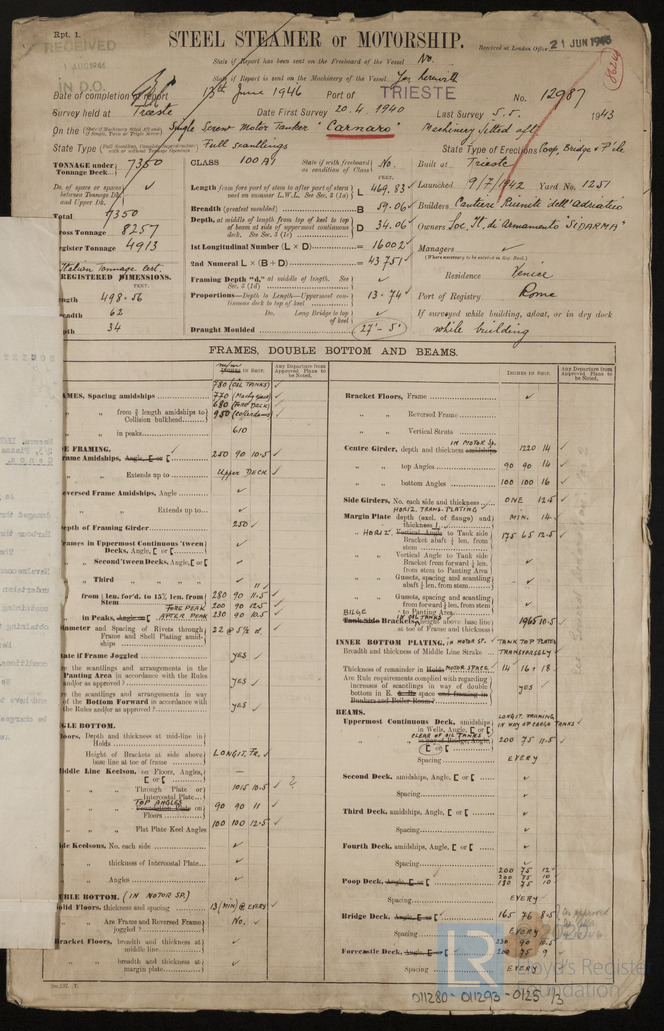 Rpt. 1.
RECEIVED
1 AUG 1946
IN D.O.
STEEL STEAMER or MOTORSHIP.
Received at London Office 21 JUN 1946
State if Report has been sent on the Freeboard of the Vessel No.
State if Report is sent on the Machinery of the Vessel Yes herewith
Date of completion of report 13th June 1946 Port of TRIESTE No. 12987
Survey held at Trieste Date First Survey 20.4.1940 Last Survey 5.5. 1943
On the Single Screw Motor Tanker "Carnaro" Machinery fitted aft
State Type Full scantlings State Type of Erections Coop, Bridge + F'cle
TONNAGE under Tonnage Deck 7350
CLASS 100 A1 State if with freeboard as condition of Class No.
Built at Trieste
Do. of space or spaces between Tonnage Dk and Upper Dk.
Length from fore part of stem to after part of stern post on summer L.W.L. See Sec. 3 (1a) L 469.83
Launched 9/7/1942 Yard No. 1251
Total 7350
Breadth (greatest moulded) B 59.06
Builders Cantieri Riuniti dell'Adriatico
Gross Tonnage 8257
Depth, at middle of length from top of keel to top of beam at side of uppermost continuous deck. See Sec. 3 (1c) D 34.06
Owners Soc. It. di Armamento "SIDARMA"
Register Tonnage 4913
1st Longitudinal Number (L × D) = 16002
Managers
2nd Numeral L × (B + D) = 43751
Italian Tonnage Cert.
REGISTERED DIMENSIONS.
FEET.
Framing Depth "d," at middle of length. See Sec. 3 (1d)
Residence Venice
Length 498.56
Proportions—Depth to Length—Uppermost continuous deck to top of keel 13.74
Port of Registry Rome
Breadth 62
Do. Long Bridge to top of keel
If surveyed while building, afloat, or in dry dock
Depth 34
Draught Moulded 27'-5"
while building
FRAMES, DOUBLE BOTTOM AND BEAMS.
Any Departure from Approved Plans to be Noted.
INCHES IN SHIP.
Any Departure from Approved Plans to be Noted.
FRAMES, Spacing amidships 780 (OIL TANKS)
" " from ⅗ length amidships to Collision bulkhead
" " in peaks 610
SIDE FRAMING.
Frame Amidships, Angle, [ or [ 250 90 10.5
" " Extends up to Upper DECK
Reversed Frame Amidships, Angle
" " Extends up to
Depth of Framing Girder 250
Frames in Uppermost Continuous 'tween Decks, Angle, [ or [
" " Second 'tween Decks, Angle, [ or [
" " Third " "
" from ⅕ len. for'd. to 15% len. from Stem 280 90 11.5
FORE PEAK 200 90 12.5
" in Peaks, Angle or [ AFTER PEAK 230 90 10.5
Diameter and Spacing of Rivets through Frame and Shell Plating amidships 22 @ 5½ d.
State if Frame Joggled YES
Are the scantlings and arrangements in the Panting Area in accordance with the Rules and/or as approved? YES
Are the scantlings and arrangements in way of the Bottom Forward in accordance with the Rules and/or as approved? YES
SINGLE BOTTOM.
Floors, Depth and thickness at mid-line in Holds
" Height of Brackets at side above base line at toe of frame LONGIT. FR.
Middle Line Keelson, on Floors, Angles, [ or [
" " Through Plate or Intercostal Plate 1015 10.5
" " TOP ANGLES Foundation Plate on Floors 90 90 11
" " Flat Plate Keel Angles 100 100 12.5
Side Keelsons, No. each side
" " thickness of Intercostal Plate
" " Angles
DOUBLE BOTTOM. (IN MOTOR SP.)
Solid Floors, thickness and spacing 13 (MIN) @ EVERY
" " Are Frame and Reversed Frame joggled? No.
Bracket Floors, breadth and thickness at middle line
" " breadth and thickness at margin plate
Bracket Floors, Frame
" " Reversed Frame
" " Vertical Struts
Centre Girder, depth and thickness amidships IN MOTOR SP. 1220 14
" " top Angles 90 90 14
" " bottom Angles 100 100 16
Side Girders, No. each side and thickness ONE 12.5
HORIZ. TRANS. PLATING
Margin Plate depth (excl. of flange) and thickness MIN. 14
" HORIZ. Vertical Angle to Tank side Bracket abaft ¼ len. from stem 175 65 12.5
" Vertical Angle to Tank side Bracket from forward ¼ len. from stem to Panting Area
" Gussets, spacing and scantling abaft ¼ len. from stem
" Gussets, spacing and scantling from forward ¼ len. from stem to Panting Area
BILGE IN OIL TANKS
Tank Side Brackets, height above base line at toe of Frame and thickness 1965 10.5
INNER BOTTOM PLATING. IN MOTOR SP. TANK TOP PLATED
Breadth and thickness of Middle Line Strake TRANSVERSELY
Thickness of remainder in Holds MOTOR SPACE 14 16 + 18
Are Rule requirements complied with regarding increases of scantlings in way of double bottom in E. & B. space and framing in Bunkers and Boiler Room? YES
BEAMS.
Uppermost Continuous Deck, amidships in Wells, Angle, [ or [ LONGIT. FRAMING IN WAY OF CARGO TANKS
" " CLEAR OF OIL TANKS in way of Bridge, Angle, [ or [ 200 75 11.5
Spacing EVERY
Second Deck, amidships, Angle, [ or [
Spacing
Third Deck, amidships, Angle, [ or [
Spacing
Fourth Deck, amidships, Angle, [ or [
Spacing
Poop Deck, Angle, [ or [ 200 75 12
200 75 10
180 75 10
Spacing EVERY
Bridge Deck, Angle, [ or [ 165 76 8.5
Spacing EVERY
Forecastle Deck, Angle, [ or [ 230 90 10.5
200 75 9
Spacing EVERY
LR
Lloyd's Register Foundation
011280 - 011293 - 0125 1/3